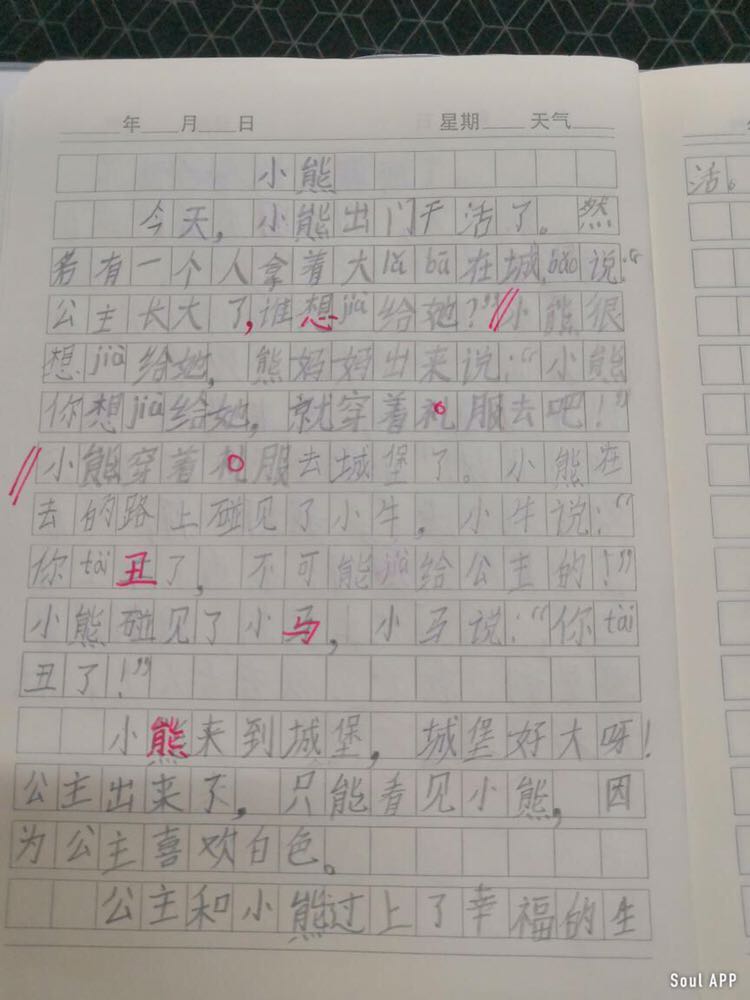 年 月 日 星期 天气
小熊
今天,小熊出门干活了。然
若有一个人拿着大lǎ bā在城bǎo说:“
公主长大了,谁想jià给她?”小熊很
想jià给她,熊妈妈出来说:“小熊
你想jià给她,就穿着礼服去吧!”
小熊穿着礼服去城堡了。小熊在
去的路上碰见了小牛,小牛说:“
你tài丑了,不可能jià给公主的!”
小熊碰见了小马,小马说:“你tài
丑了!”
小熊来到城堡,城堡好大呀!
公主出来了,只能看见小熊,因
为公主喜欢白色。
公主和小熊过上了幸福的生
活。
Soul APP